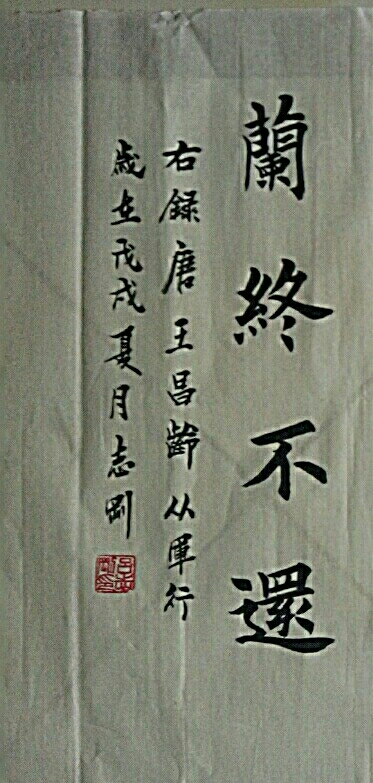 蘭終不還
右録唐王昌齡从軍行
歲在戊戌夏月志剛